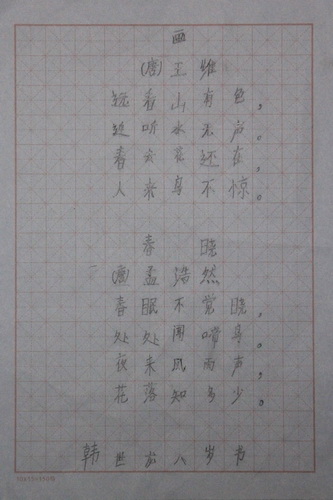 画
(唐)王维
远看山有色，
近听水无声。
春去花还在，
人来鸟不惊。
春晓
(唐)孟浩然
春眠不觉晓，
处处闻啼鸟。
夜来风雨声，
花落知多少。
韩世 八岁书